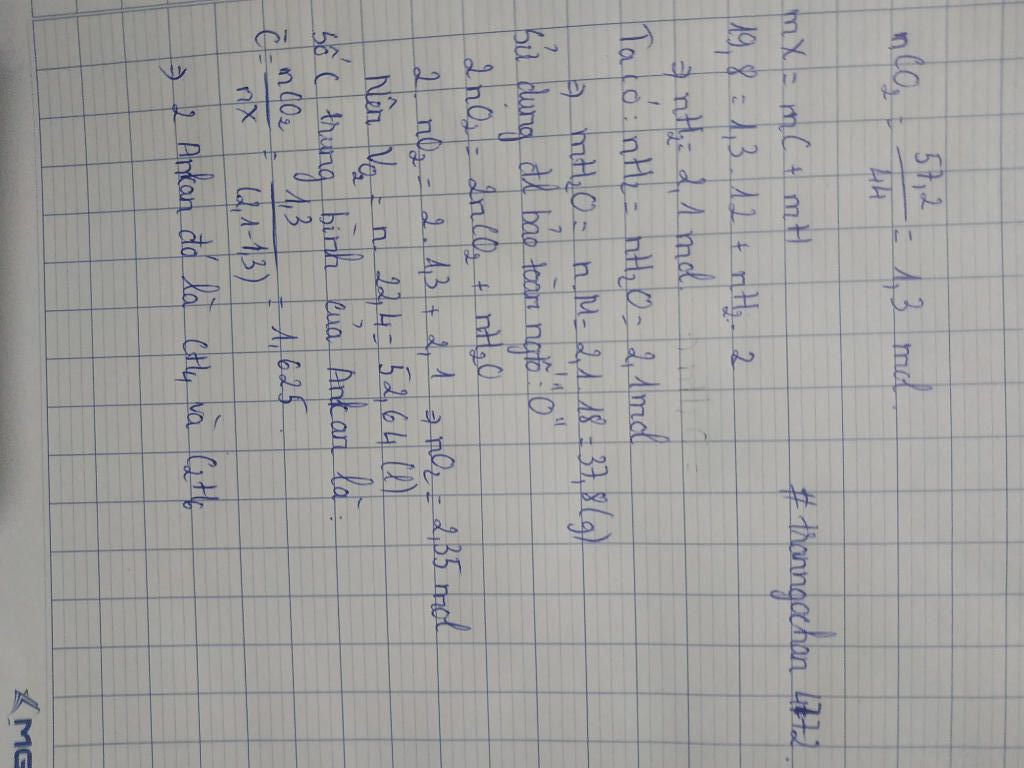 nCO₂ = 57,2 / 44 = 1,3 mol.
#tranngochan 4772.
mX = mC + mH
19,8 = 1,3.12 + nH₂.2
⇒ nH₂ = 2,1 mol
Ta có: nH₂ = nH₂O = 2,1mol
⇒ mH₂O = n.M = 2,1.18 = 37,8(g)
Sử dụng đl bảo toàn ngtố "O"
2nO₂ = 2nCO₂ + nH₂O
2.nO₂ = 2.1,3 + 2,1 ⇒ nO₂ = 2,35 mol
Nên V₂ = n 22,4 = 52,64 (l)
Số C trung bình của Ankan là:
C̄ = nCO₂ / nX = 1,3 / (2,1-1,3) = 1,625.
⇒ 2 Ankan đó là CH₄ và C₂H₆
MG